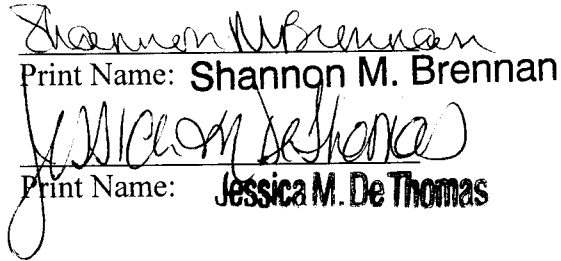 Shannon M Brennan
Print Name: Shannon M. Brennan
Jessica M DeThomas
Print Name: Jessica M. De Thomas